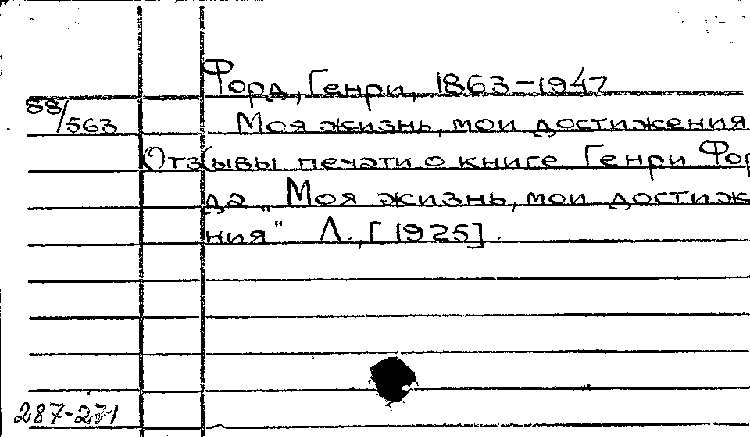 Форд, Генри, 1863-1947
88/563
Моя жизнь, мои достижения
Отзывы печати о книге Генри Фор
да „Моя жизнь, мои достиже
ния" Л., [1925].
287-271